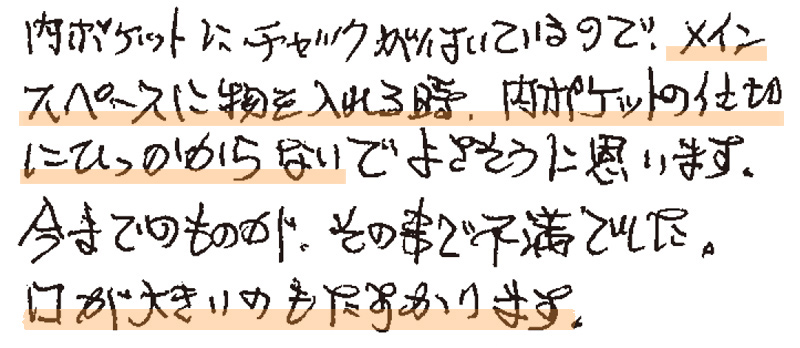 内ポケットにチャックがはいているので、メイン
スペースに物を入れる時、内ポケットの仕切
にひっかからないでよさそうに思います。
今までのものが、その事で不満でした。
口が大きいのもたすかります。